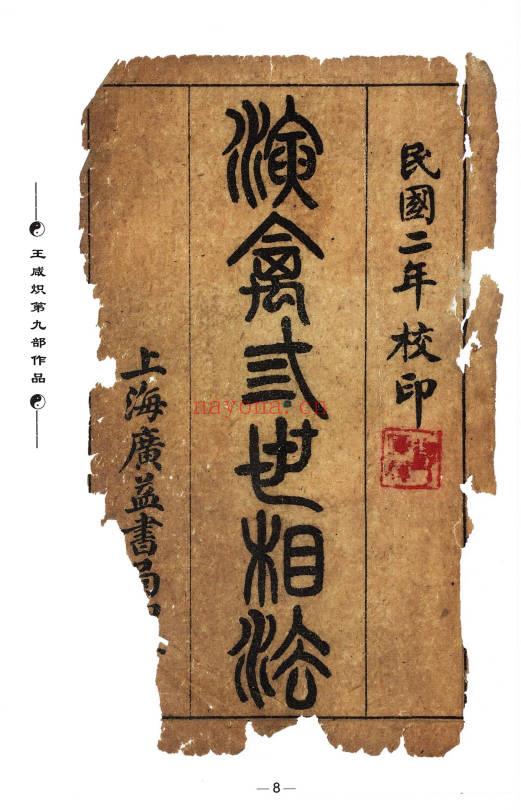 民國二年校印
演禽弎世相法
上海廣益書局
王咸炽第九部作品
nayona.cn
—8—